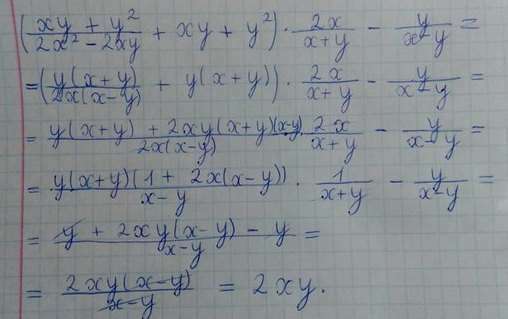 (xy + y²)/(2x² - 2xy) + xy + y²) · 2x/(x+y) - y/(x-y) =
=(y(x+y)/(2x(x-y)) + y(x+y)) · 2x/(x+y) - y/(x-y) =
= (y(x+y) + 2xy(x+y)(x-y))/(2x(x-y)) · 2x/(x+y) - y/(x-y) =
= y(x+y)(1 + 2x(x-y))/(x-y) · 1/(x+y) - y/(x-y) =
= (y + 2xy(x-y) - y)/(x-y) =
= 2xy(x-y)/(x-y) = 2xy.